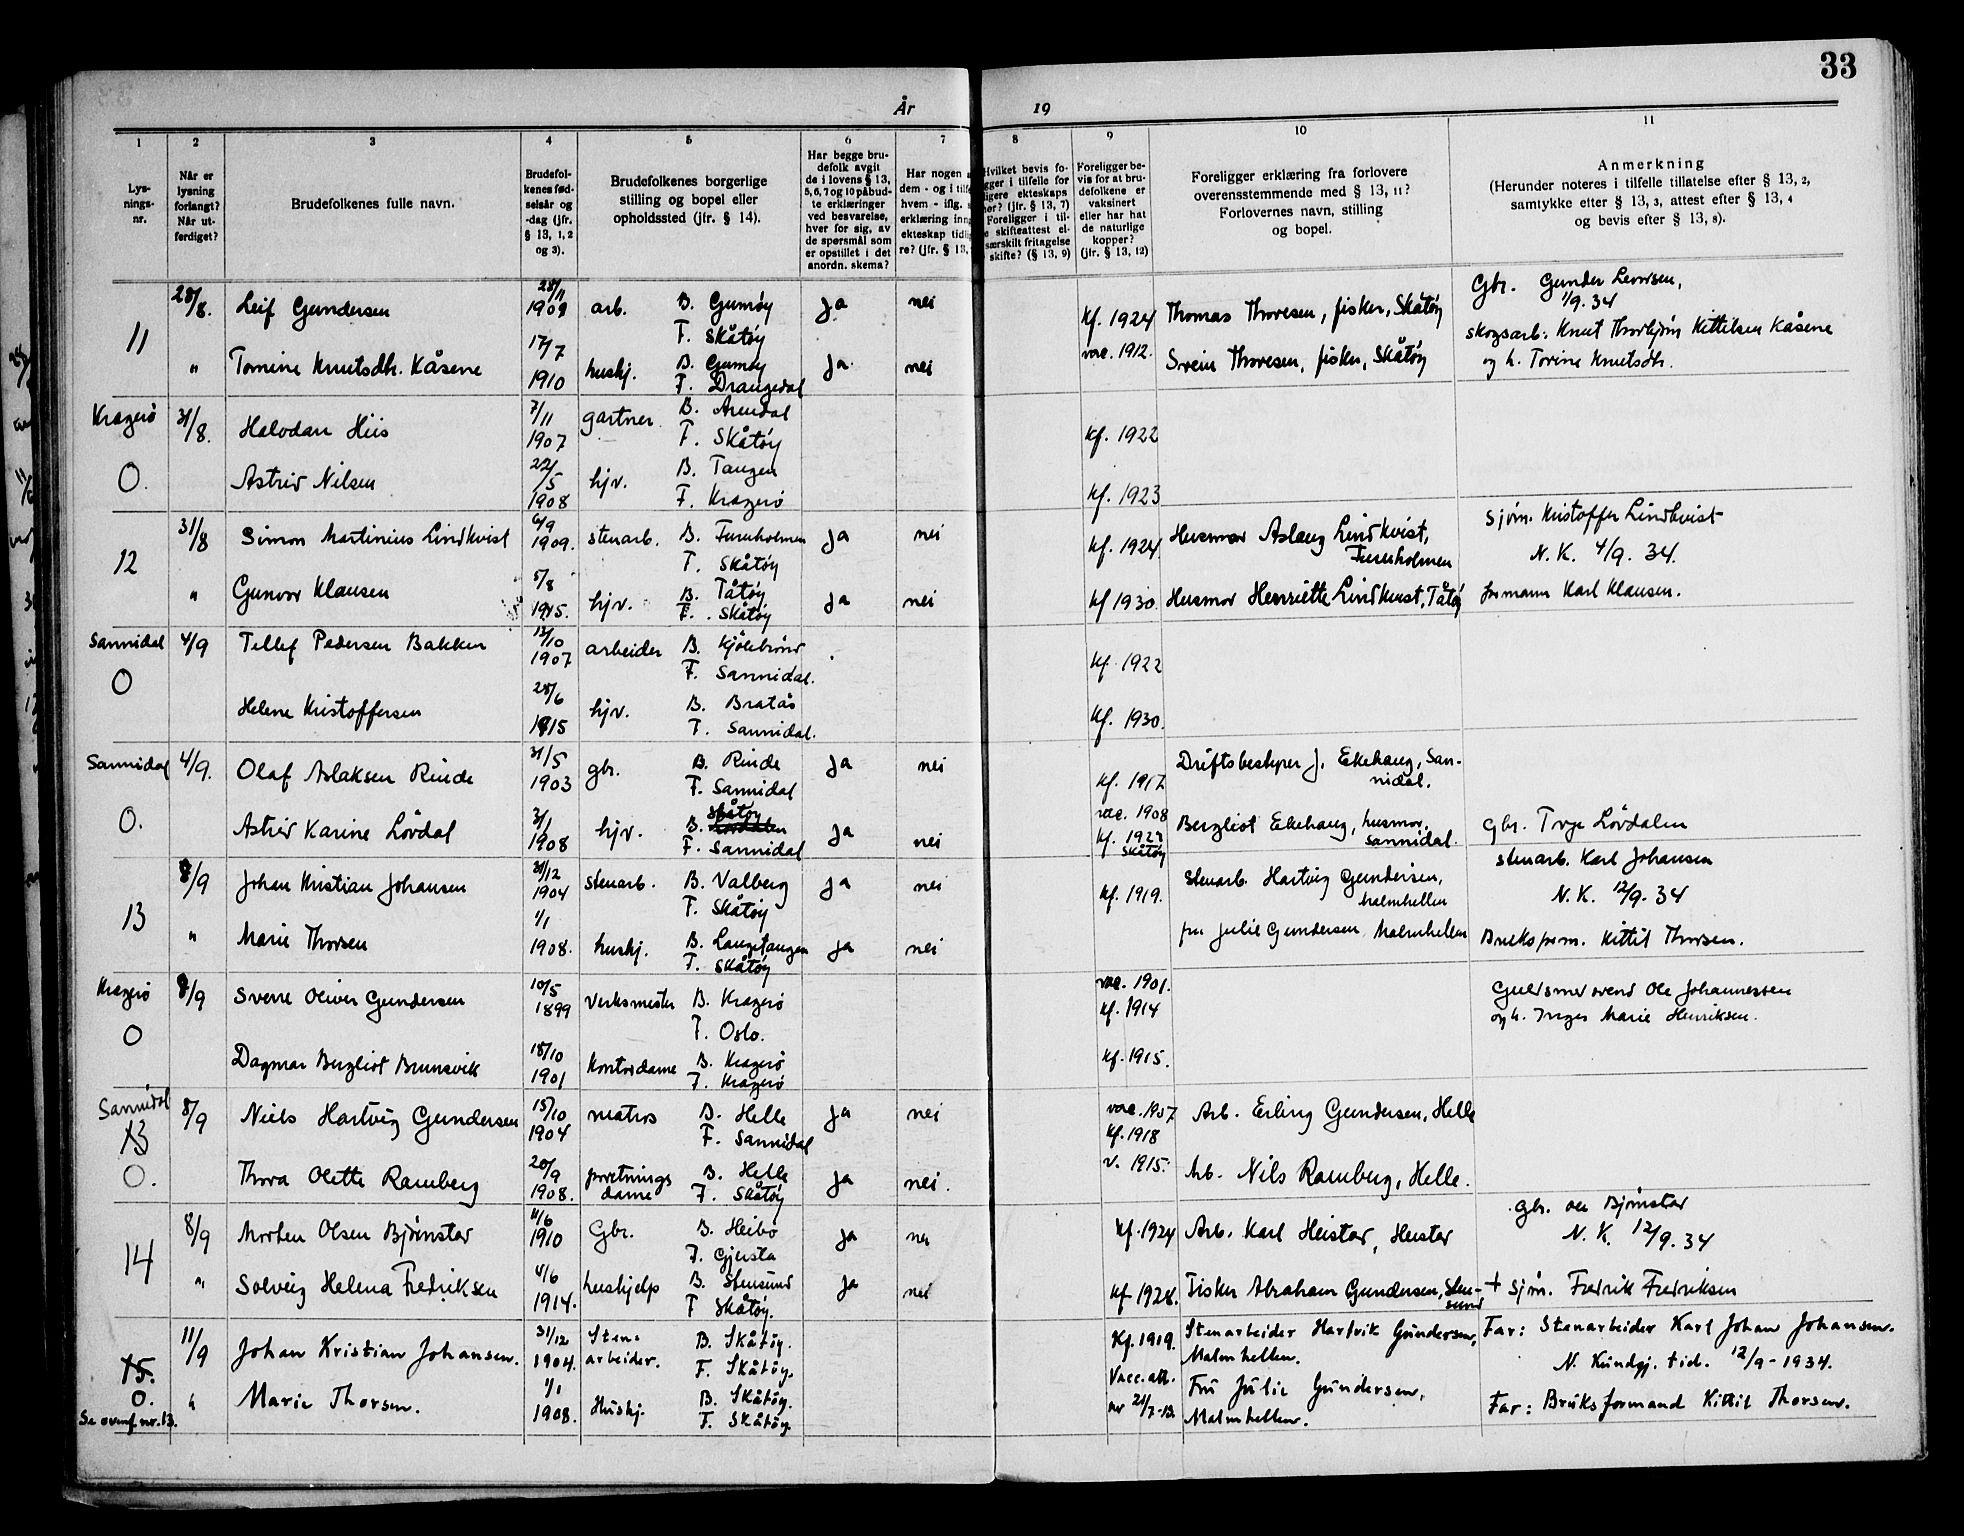 33
År 19
1 2 3 4 5 6 7 8 9 10 11
Lys-
nings-
nr.
Når er
lysning
forlangt?
Når ut-
ferdiget?
Brudefolkenes fulle navn.
Brudefol-
kenes fød-
selsår og
-dag (jfr.
§ 13, 1, 2
og 3).
Brudefolkenes borgerlige
stilling og bopel eller
opholdssted (jfr. § 14).
Har begge bru-
defolk avgit
de i lovens § 13,
5, 6, 7 og 10 påbud-
te erklæringer
ved besvarelse,
hver for sig, av
de spørsmål som
er opstillet i det
anordn. skema?
Har nogen a
dem - og i tilfe
hvem - iflg. s
erklæring inng
ekteskap tidli
re? (jfr. § 13,
Hvilket bevis fo-
gger i tilfelle for
ligere ekteskaps
hør? (jfr. § 13, 7)
Foreligger i til-
e skifteattest el-
særskilt fritagelse
skifte? (§ 13, 9)
Foreligger be-
vis for at bru-
defolkene er
vaksinert
eller har hat
de naturlige
kopper?
(jfr. § 13, 12)
Foreligger erklæring fra forlovere
overensstemmende med § 13, 11?
Forlovernes navn, stilling
og bopel.
Anmerkning
(Herunder noteres i tilfelle tillatelse efter § 13, 2,
samtykke efter § 13, 3, attest efter § 13, 4
og bevis efter § 13, 8).
11 28/8. Leif Gundersen 28/11 1909 arb. B. Gumøy F. Skåtøy Ja nei Kf. 1924 Thomas Thoresen, fisker, Skåtøy Gbr. Gunder Levorsen, 1/9. 34
" Tomine Knutsdtr. Kåsene 17/7 1910 hushj. B. Gumøy F. Drangedal Ja nei vac. 1912. Svein Thoresen, fisker, Skåtøy skogsarb. Knut Thorbjørn Kittilsen Kåsene
og h. Torine Knutsdtr.
Kragerø 31/8. Halvdan Hiis 7/11 1907 gartner B. Arendal F. Skåtøy Kf. 1922
O. Astrid Nilsen 22/5 1908 hjv. B. Tangen F. Kragerø Kf. 1923
12 31/8 Simon Martinius Lindkvist 6/9 1909. stenarb. B. Furuholmen F. Skåtøy Ja nei Kf. 1924. Husmor Aslaug Lindkvist, Furuholmen Sjøm. Kristoffer Lindkvist
N. K. 4/9. 34.
" Gunvor Klausen 5/8 1915. hjv. B. Tåtøy F. Skåtøy Ja nei Kf 1930. Husmor Henriette Lindkvist, Tåtøy formann Karl Klausen.
Sannidal 4/9 Tellef Pedersen Bakken 13/10 1907 arbeider B. Kjølebrønd F. Sannidal. Kf. 1922
O Helene Kristoffersen 28/6 1915 hjv. B. Bratås F. Sannidal. Kf. 1930.
Sannidal 4/9. Olaf Aslaksen Rinde 31/5 1903 gbr. B. Rinde F. Sannidal Ja nei Kf. 1917 Driftsbestyrer J. Ekehaug, San-
nidal.
O. Astrid Karine Lövdal 3/1 1908 hjv. B. Skåtøy F. Sannidal Ja nei vac. 1908 Kf. 1923 Skåtøy Bergliot Ekehaug, husmor, Sannidal. Gbr. Terje Lövdalen
13 8/9 Johan Kristian Johansen 31/12 1904 stenarb. B. Valberg F. Skåtøy Ja nei Kf. 1919. Stenarb. Hartvig Gundersen, Malmhellen stenarb. Karl Johansen
N. K. 12/9. 34
" Marie Thorsen 1/1 1908. hushj. B. Langetangen F. Skåtøy Ja nei fru Julie Gundersen Malmhellen Bruksform. Kittil Thorsen.
Kragerø 8/9 Sverre Oliver Gundersen 10/5 1899 Verksmester B. Kragerø F. Oslo. vac. 1901. Kf. 1914 Guldsmedsvend Ole Johannessen
og h. Inger Marie Henriksen.
O Dagmar Bergliot Brunsvik 18/10 1901 Kontordame B. Kragerø F. Kragerø Kf. 1915.
Sannidal 13 8/9 Niels Hartvig Gundersen 15/10 1904 matros B. Helle F. Sannidal Ja nei vac. 1907 Kf. 1918 Arb. Erling Gundersen, Helle
O. Thora Olette Ramberg 20/9 1908. forretnings
dame B. Helle F. Skåtøy Ja nei. v. 1915. Arb. Nils Ramberg, Helle.
14 8/9 Morten Olsen Bjørnstad 11/6 1910 Gbr. B. Heibø F. Gjersta Ja nei Kf. 1924 Arb. Karl Heistad, Heistad gbr. Ole Bjørnstad
N. K. 12/9. 34
" Solveig Helena Fredriksen 4/6 1914. hushjelp B. Stensund F Skåtøy. Ja nei Kf 1928. Fisker Abraham Gundersen, Sten-
sund + Sjøm. Fredrik Fredriksen
15. 11/9 Johan Kristian Johansen. 31/12 1904. Sten-
arbeider. B. Skåtøy. F. Skåtøy. Kf. 1919. Stenarbeider Hartvik Gundersen,
Malmhellen. Far: Stenarbeider Karl Johan Johansen.
N. Kundgj. tid. 12/9 - 1934.
O. " Marie Thorsen. 1/1 1908. Hushj. B. Skåtøy. F. Skåtøy. Vacc. att. Fru Julie Gundersen,
Malmhellen. Far: Bruksformand Kittil Thorsen.
Se ovenf. nr. 13.